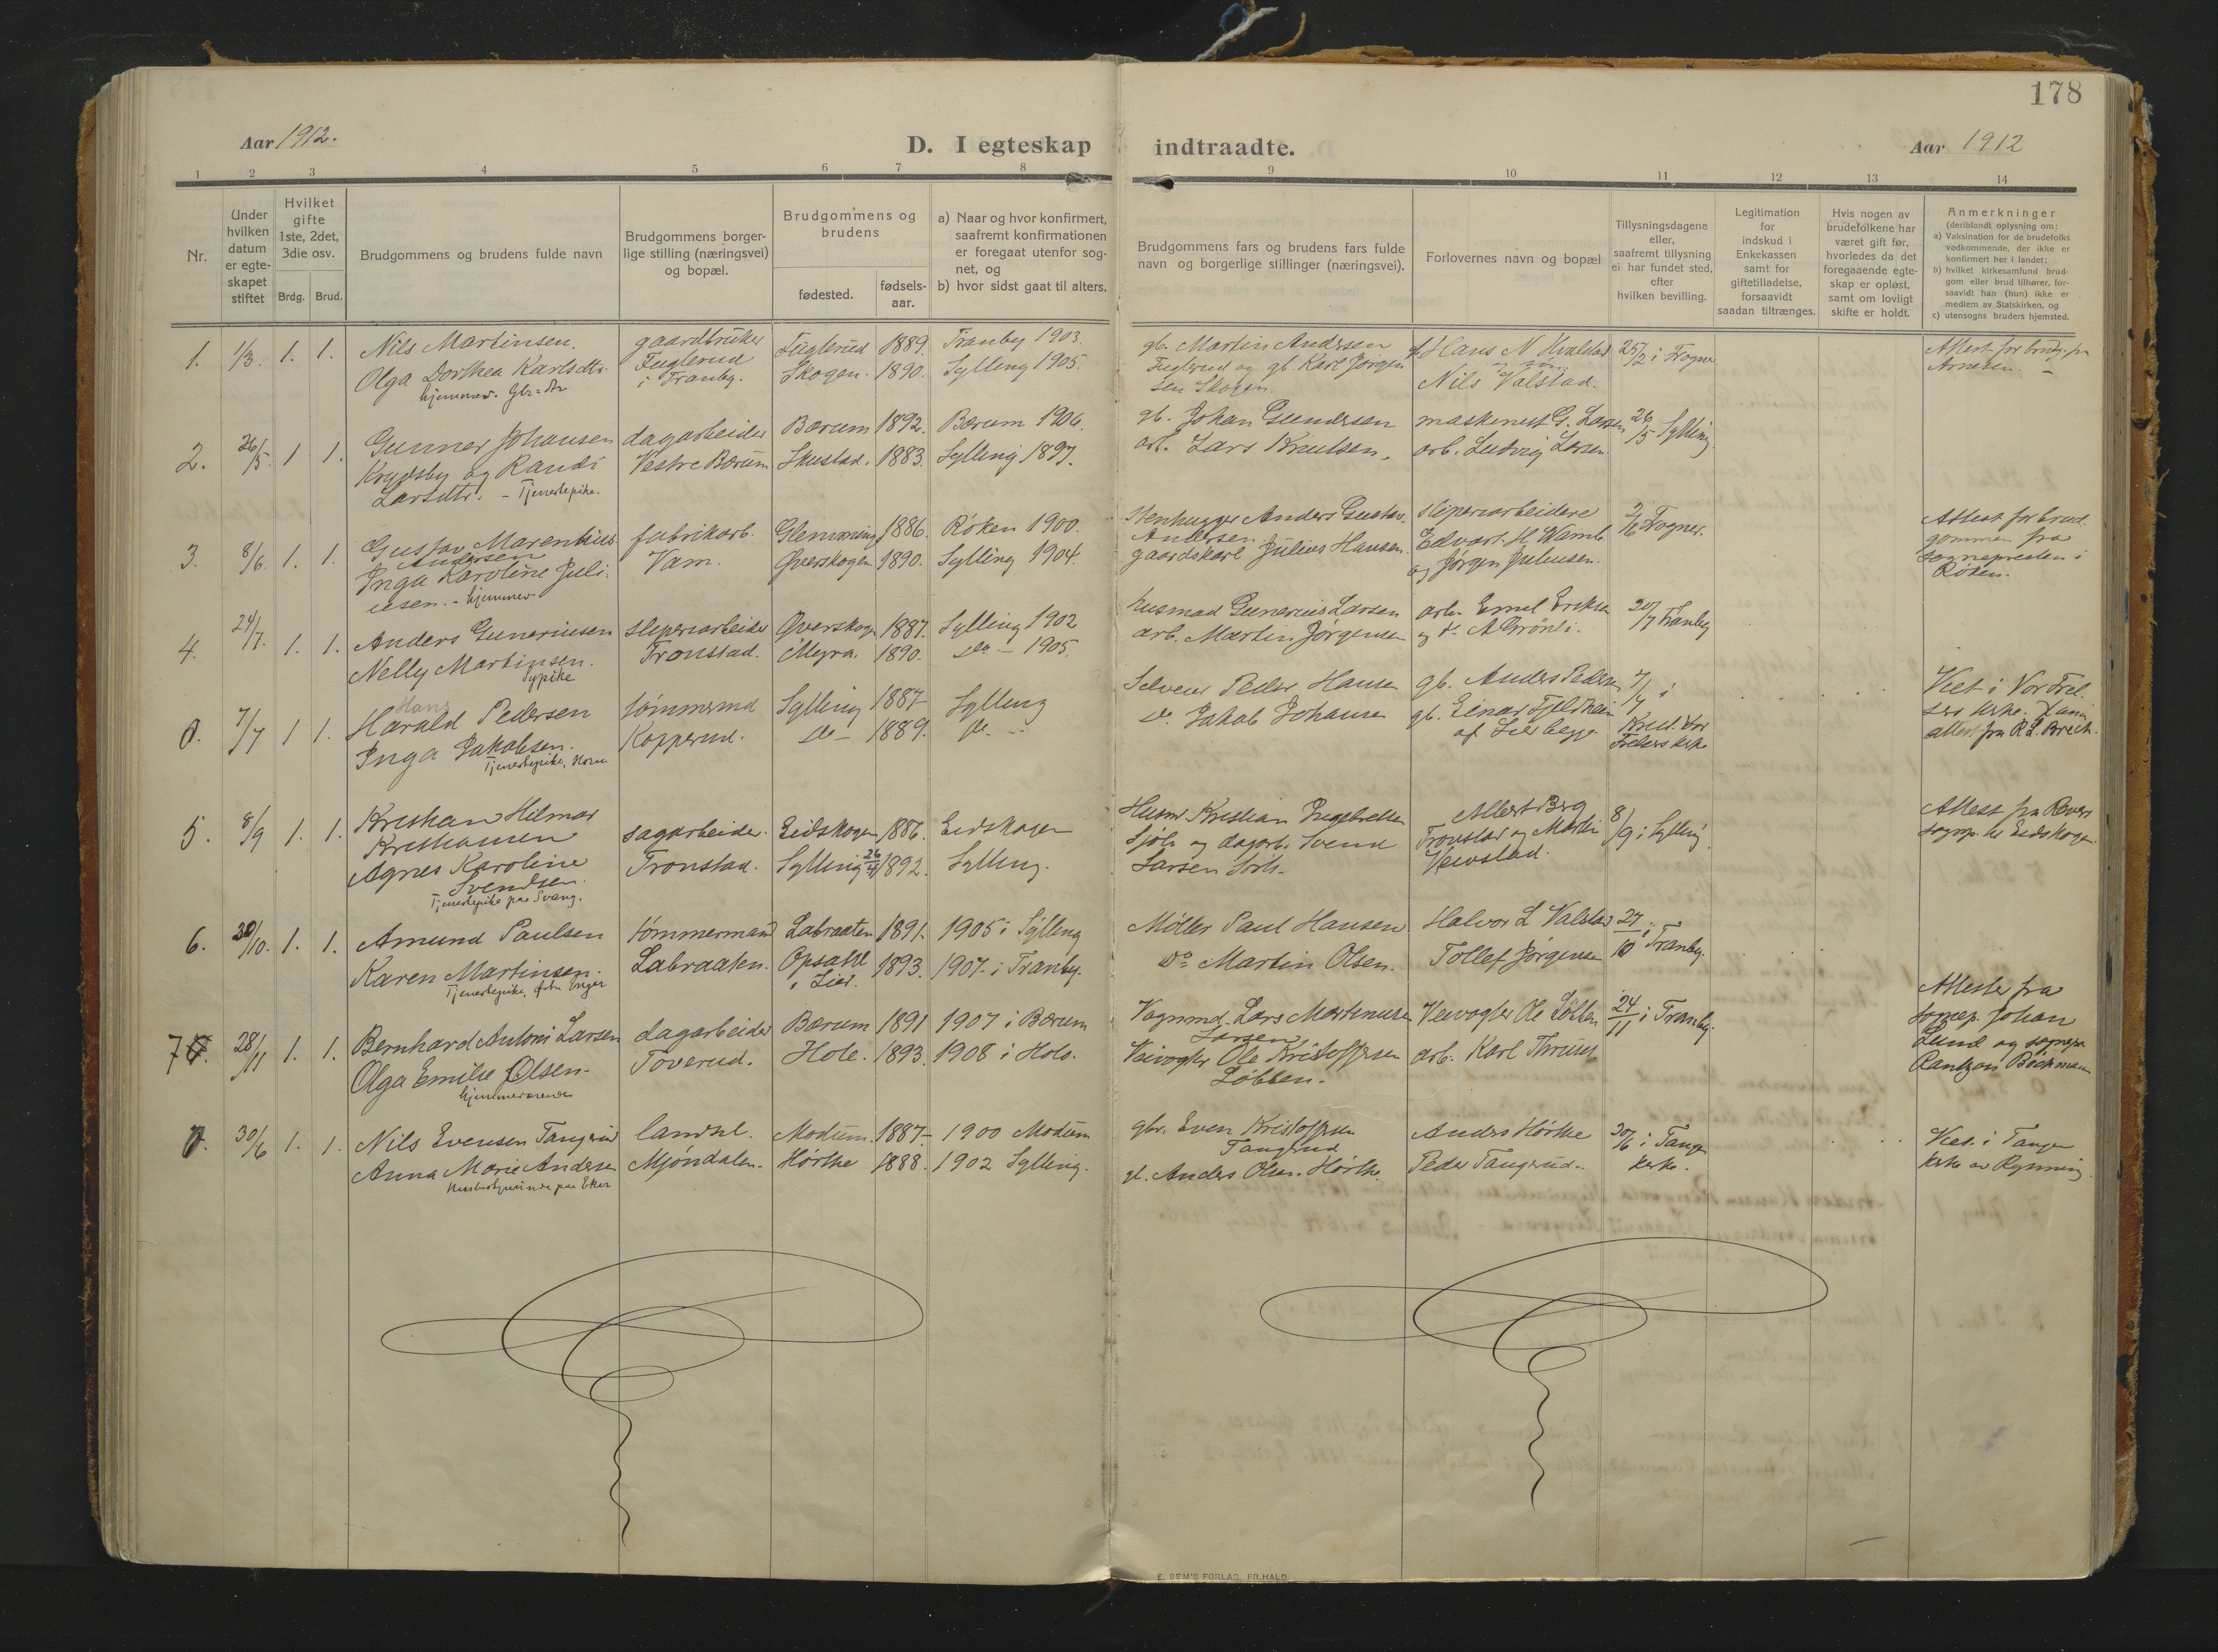 178
Aar 1912.
D. I egteskap indtraadte.
Aar 1912
1 2 3 4 5 6 7 8 9 10 11 12 13 14
Nr.
Under hvilken datum er egte-skapet stiftet
Hvilket gifte 1ste, 2det, 3die osv.
Brdg. Brud.
Brudgommens og brudens fulde navn
Brudgommens borger-lige stilling (næringsvei) og bopæl.
Brudgommens og brudens
fødested.
fødsels-aar.
a) Naar og hvor konfirmert, saafremt konfirmationen er foregaat utenfor sog-net, og
b) hvor sidst gaat til alters.
Brudgommens fars og brudens fars fulde navn og borgerlige slillinger (næringsvei).
Forlovernes navn og bopæl
Tillysningsdagene eller, saafremt tillysning ei har fundet sted, efter hvilken bevilling.
Legitimation for indskud i Enkekassen samt for giftetilladelse, forsaavidt saadan tiltrænges.
Hvis nogen av brudefolkene har været gift før, hvorledes da det foregaaende egte-skap er opløst, samt om lovligt skifte er holdt.
Anmerkninger
(deriblandt oplysning om:
a) Vaksination for de brudefolks vedkommende, der ikke er konfirmert her i landet;
b) hvilket kirkesamfund brud-gom eller brud tilhører, for-saavidt han (hun) ikke er medlem av Statskirken, og
c) utensogns bruders hjemsted.
1. 1/3. 1. 1. Nils Martinsen. gaardbruker Fuglerud 1889. Tranby 1903. gb. Martin Andersen Hans N Kvalstad 25/2 i Frogner Attest for brudg. fra
Olga Dorthea Karlsdtr. Fuglerud Skogen. 1890. Sylling 1905. Fuglerud og gb. Karl Jørgen Nils Valstad. Arnesen.
hjemmev. Gbr=dtr i Tranby. sen Skogen.
2. 26/5. 1 1. Gunner Johansen dagarbeider Bærum 1892. Bærum 1906. gb. Johan Gundersen maskenist G. Larsen 26/5 Sylling
og Randi Vestre Bærum Skustad. 1883. Sylling 1897. arb. Lars Knudsen. arb. Ludvig Larsen
Larsdtr. - Tjenestepike.
3. 8/6. 1. 1. Gustav Marenhius fabrikarb. Glemming 1886. Røken 1900. Stenhugger Anders Gustav. sliperiarbeidere 2/6 Frogner. Attest for brud
Andersen Andersen. Edvart H Wamb. gommen fra
Inga Karoline Juli- Vam. Øverskogen 1890. Sylling 1904. gaardskarl Julius Hansen. og Jørgen Juliusen. sognepresten i
usen. - hjemmev Røken.
4. 24/7. 1. 1. Anders Gunerieusen sliperiarbeider Øverskogen 1887. Sylling 1902 husmand Gunerius Larsen arb. Emil Eriksen 20/7 Tranby
Nelly Martinsen. Tronstad. Myra. 1890. do - 1905. arb. Martin Jørgensen og do A Grønli.
Sypike
0. 7/7 1 1. Hans
Harald Pedersen tømmermd Sylling 1887 Sylling Selveier Peder Hansen gb. Anders Pedersen 7/7 i Viet i Vor Frel.
Inga Jakobsen. Kopperud. do - 1889. do. do. Jakob Johansen gb. Einar Fjeldheim Krist. Vor sers kirke.
Tjenestepike, af Lierbygge Frelsers kirke attest fra
5. 8/9 1. 1. Kristian Hilmar sagarbeider. Eidskogen 1886. Eidskogen Husmd Kristian Ingebretsen Albert Berg 8/9 i Sylling Attest fra
Kristiansen Tronstad og Martin sognep. til Eidskogen
Agnes Karoline Tronstad. Sylling 26/4 1892. Sylling. og dagarb. Svend Veivstad.
Svendsen. Larsen
Tjenestepike paa Svang.
6. 30/10. 1. 1. Amund Paulsen tømmermand Labraaten 1891. 1905 i Sylling Møller Paul Hansen Halvor L Valstad 27/10 i Tranby.
Karen Martinsen. Labraaten. Opsahl i Lier. 1893. 1907. i Tranby. do Martin Olsen. Tollef Jørgensen
Tjenestepike, Enger
7. 28/11 1. 1. Bernhard Antoni Larsen dagarbeider Bærum 1891 1907 i Bærum Vognmd. Lars Martinusen Veivogter Ole Løbben 24/11 i Tranby. Attester fra
Larsen sognep. Johan
Olga Emilie Olsen. Toverud. Hole. 1893. 1908 i Hole. Veivogter Ole Kristoffersen arb. Karl Lund og sognepr
hjemmeværende Løbben. Bøckman
0. 30/6 1. 1. Nils Evensen Tangerud landh. Modum. 1887 - 1900 Modum gbr. Even Kristoffersen Anders Hørthe 30/6 i Tangen Viet i Tangen
Tangerud kirke.
Anna Marie Andersen Mjøndalen. Hørthe 1888. 1902 Sylling. gb. Anders Olsen Hørthe. Peder Tangerud. kirke av Rynning
paa Eker
E. SEM'S FORLAG, FR.HALD.